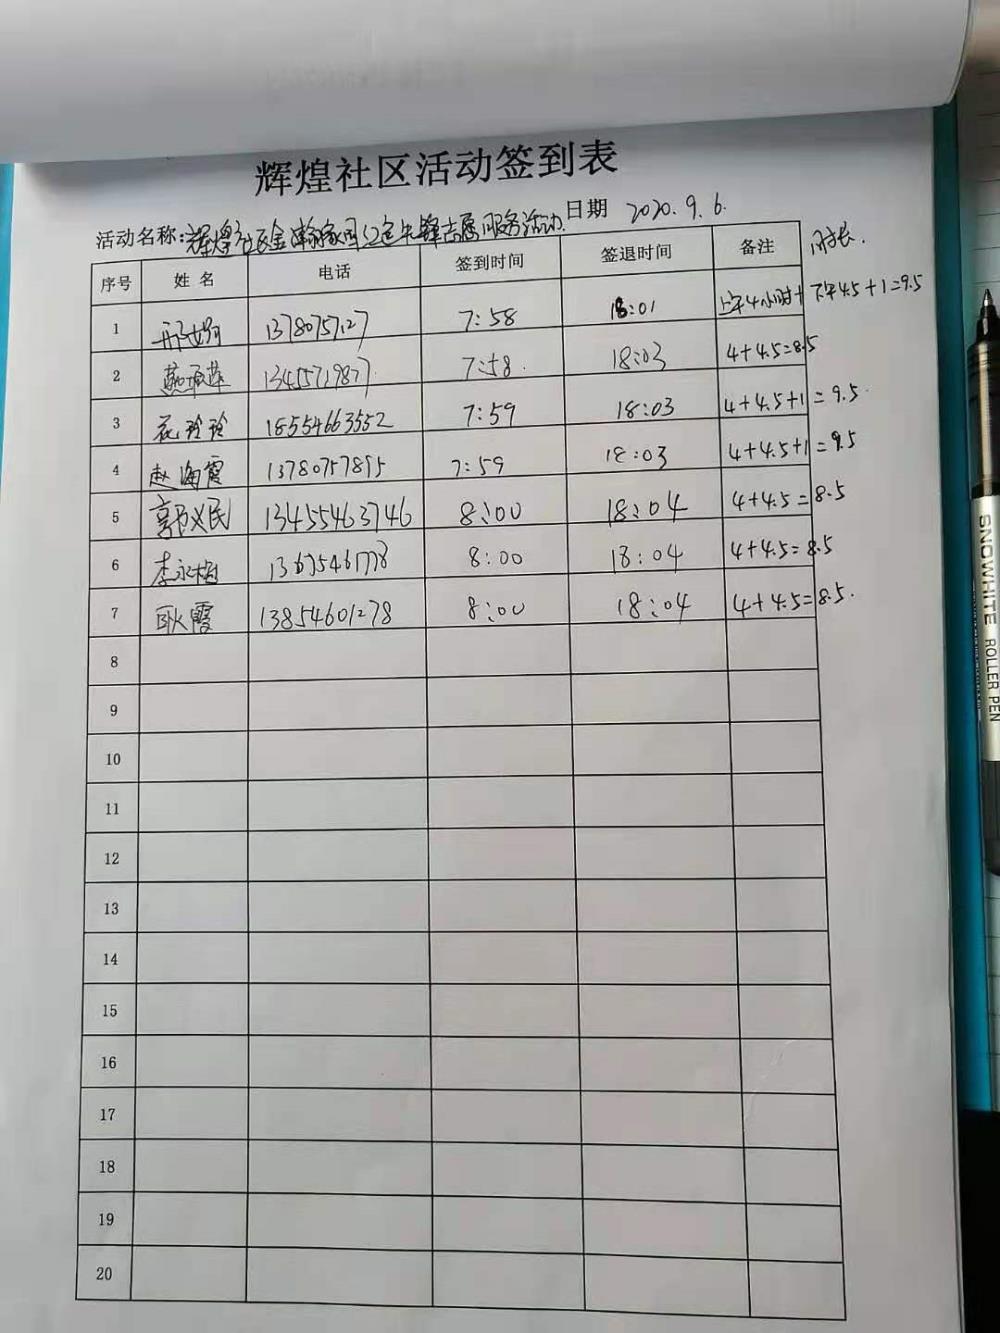 辉煌社区活动签到表
活动名称:辉煌社区金瀚家园红色先锋志愿服务活动 日期 2020.9.6.
序号 姓名 电话 签到时间 签退时间 备注 时长.
1 13780757127 7:58 18:01 上午4小时+下午4.5+1=9.5
2 13455719877. 7:58. 18:03 4+4.5=8.5
3 花玲玲 18554663552 7:59 18:03 4+4.5+1=9.5.
4 赵海霞 13780757895 7:59 18:03 4+4.5+1=9.5
5 郭义民 13455463746 8:00 18:04 4+4.5=8.5
6 李永梅 8:00 18:04 4+4.5=8.5
7 耿霞 13854601278 8:00 18:04 4+4.5=8.5.
8
9
10
11
12
13
14
15
16
17
18
19
20
SNOWHITE ROLLER PEN